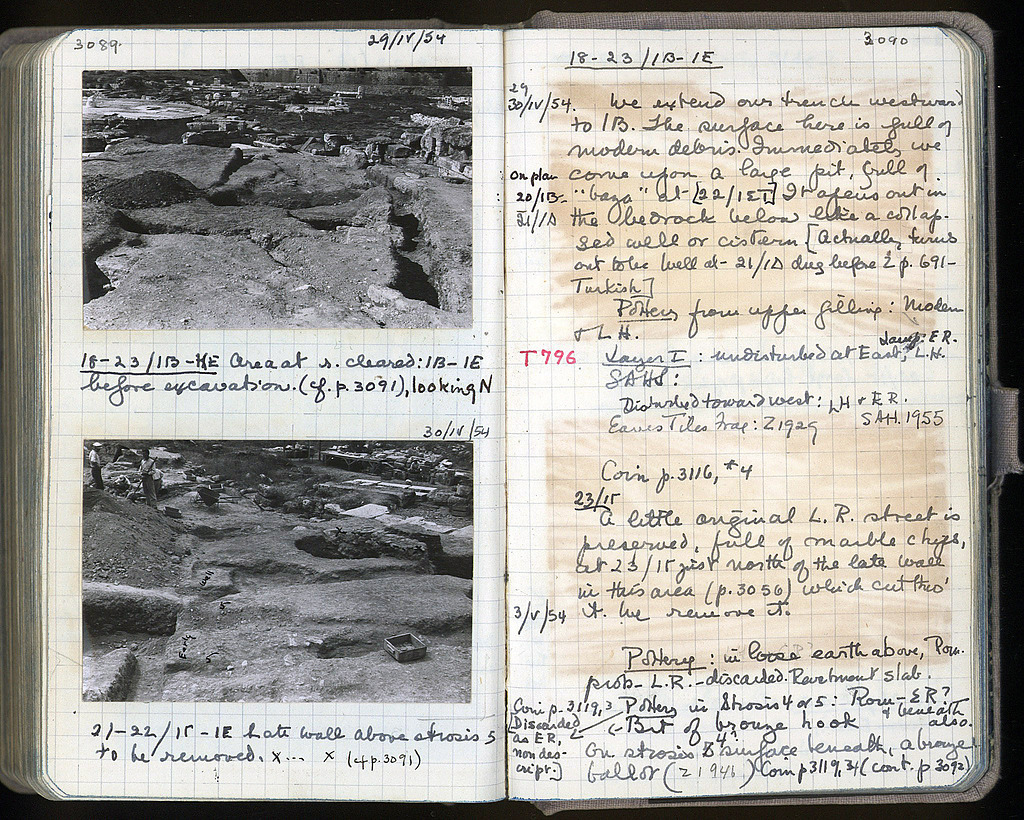 3089.
29/IV/54
18-23/1B-1E Area at s. cleared: 1B-1E
before excavation. (cf. p. 3091), looking N
30/IV/54
21-22/1Γ-1E Late wall above strosis 5
to be removed. x... x (cf p. 3091)
3090
18-23/1B-1E
29
30/IV/54. We extend our trench westward
to 1B. The surface here is full of
modern debris. Immediately we
on plan come upon a large pit, full of
20/1B- "baza" at [22/1ΣΤ] It opens out in
21/1Δ the bedrock below like a collap-
sed well or cistern [Actually turns
out to be well at 21/1Δ dug before Σ p. 691-
Turkish]
Pottery from upper filling: Modern
& L.H.
Lamp: E.R.
T796 Layer I: undisturbed at East: L.H.
SAHS:
Disturbed toward west: LH & E.R.
Eaves Tiles Frag: Σ1929 SAH. 1955
Coin p. 3116, #4
23/1Γ
A little original L.R. street is
preserved, full of marble chips,
at 23/1Γ just north of the late wall
in this area (p. 3056) which cut thro'
3/V/54 it. We remove it.
Pottery: in loose earth above, Rom.
prob- L.R.-discarded. Revetment slab.
Coin p. 3119,3 Pottery in Strosis 4 or 5: Rom-ER?
[Discarded Bit of bronze hook & beneath
as ER, also.
nondes- On strosis surface beneath, a bronze
cript.] (Σ1946) Coin p3119,34 (cont. p 3092)